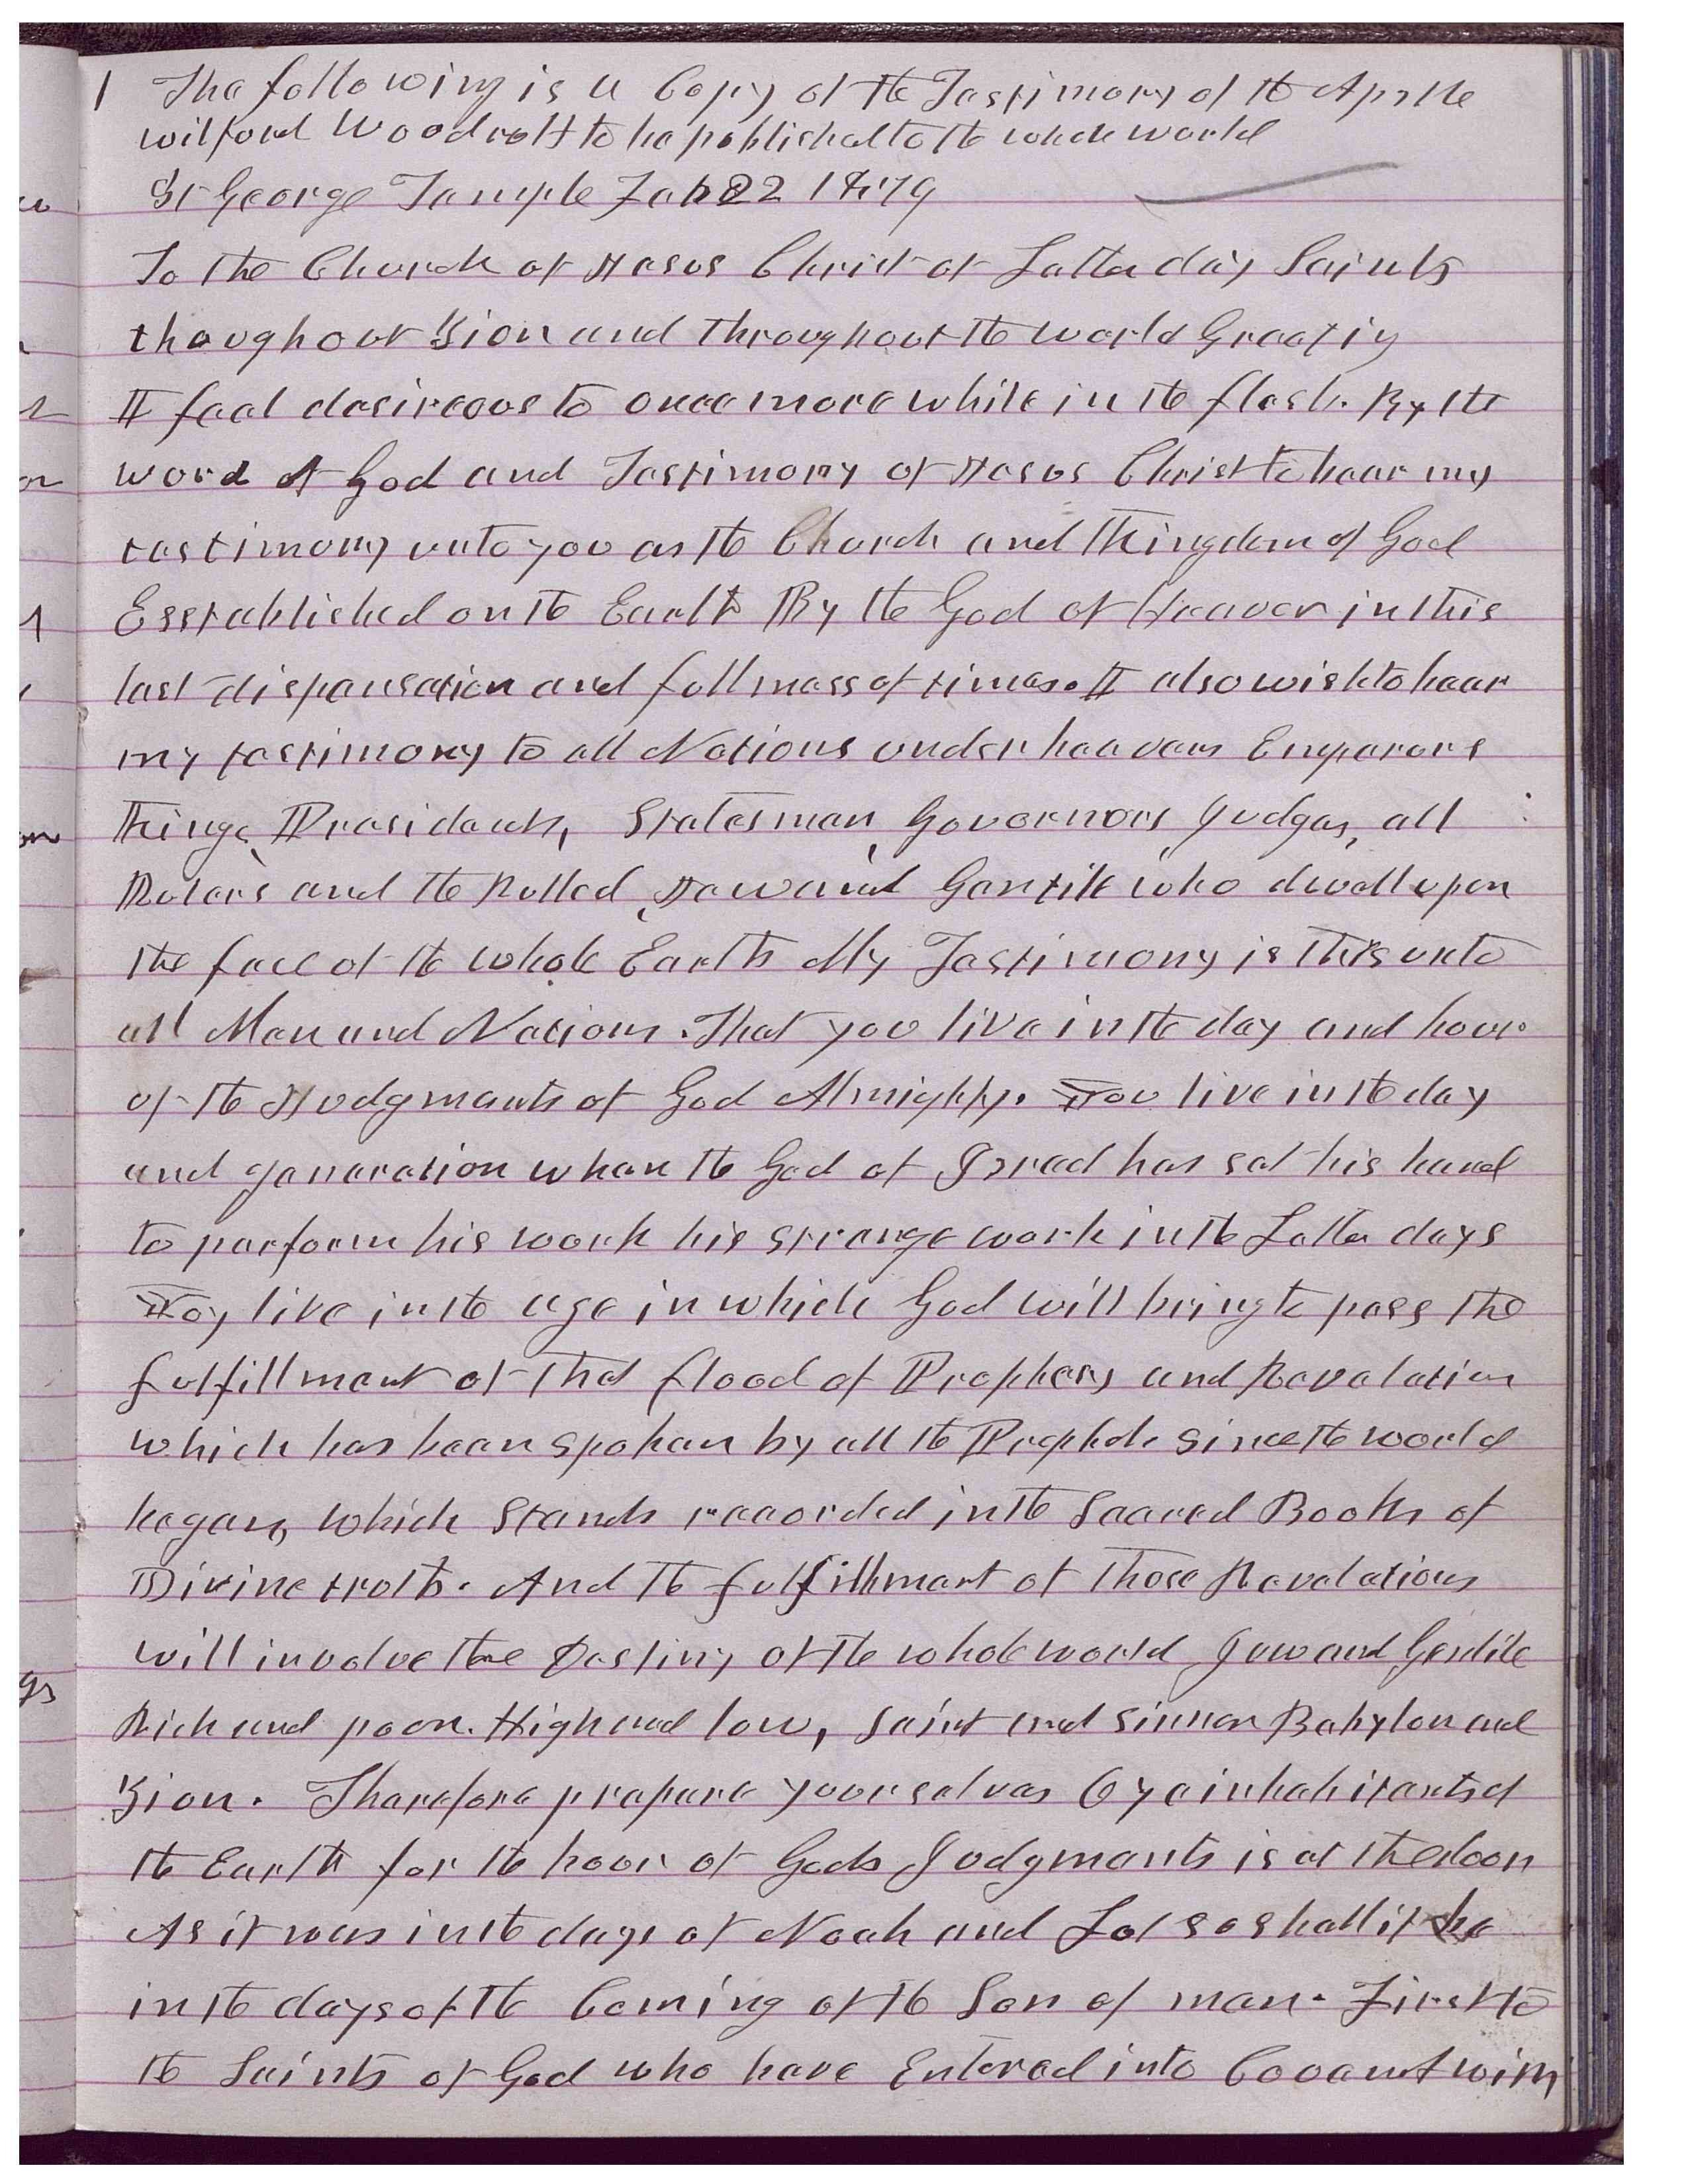 1 The following is a Copy of the Testimony of the Apstle
Wilford Woodruff to be published to the whole world
St George Temple Feb 22 1879
To the Church of Jesus Christ of Latter day Saints
thoughout Zion and throughout the world Greetig
I feel desireous to once more while in the flesh. By the
word of God and Testimony of Jesus Christ to bear my
testimony unto you as the Church and Kingdom of God
Esstablished on the Earth By the God of Heaven in this
last dispensation and fullness of times. I also wish to bear
my testimony to all Nations under heavens Emperors
Kings, Presidents, Statesman, Governors, Judges, all
Rulers and the Rulled, Jew and Gentile who dwell upon
the face of the whole Earth My Testimony is this unto
all Men and Nations. That you live in the day and hour
of the Judgments of God Almighty. You live in the day
and generation when the God of Israel has set his hand
to perform his work his strange work in the Latter days
You live in the age in which God will bring to pass the
fulfillment of that flood of Prophecy and Revelation
which has been spoken by all the Prophets since the world
began, which stands recorded in the Sacred Books of
Divine truth. And the fulfillment of those Revelations
will involve the Destiny of the whole world Jew and Gentile
Rich and poor. High and low, Saint and sinner Babylon and
Zion. Therefore prepare yourselves O ye inhabitants of
the Earth for the hour of Gods Judgments is at the door
As it was in the days of Noah and Lot so shall it be
in the days of the Coming of the Son of man. First to
the Saints of God who have Entered into Covenant with